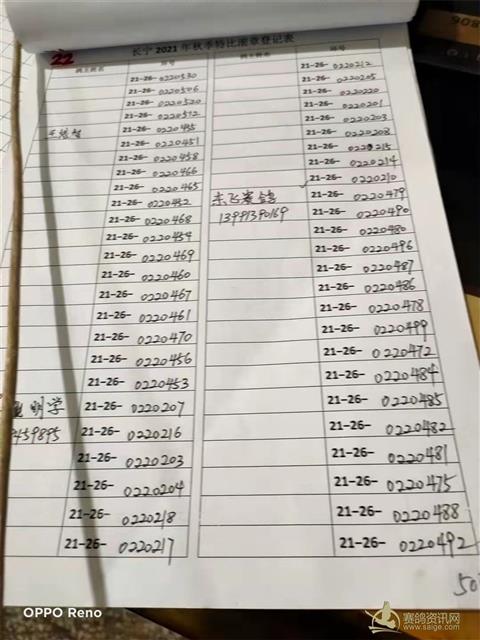 22
长宁 2021 年秋季特比滚章登记表
鸽主姓名 环号 鸽主姓名 环号
21-26-0220530
21-26-0220506
21-26-0220520
21-26-0220512
21-26-0220435
21-26-0220451
21-26-0220458
21-26-0220466
21-26-0220465
21-26-0220452
21-26-0220468
21-26-0220454
21-26-0220469
21-26-0220460
21-26-0220467
21-26-0220461
21-26-0220470
21-26-0220456
21-26-0220453
明学 21-26-0220207
459895 21-26-0220216
21-26-0220203
21-26-0220204
21-26-0220218
21-26-0220217
21-26-0220212
21-26-0220205
21-26-0220220
21-26-0220201
21-26-0220203
21-26-0220208
21-26-0220215
21-26-0220214
21-26-0220210
东飞赛鸽 21-26-0220479
13991390169 21-26-0220490
21-26-0220480
21-26-0220496
21-26-0220487
21-26-0220486
21-26-0220478
21-26-0220499
21-26-0220472
21-26-0220484
21-26-0220485
21-26-0220482
21-26-0220481
21-26-0220475
21-26-0220488
21-26-0220492
50
OPPO Reno
赛鸽资讯网
www.saige.com